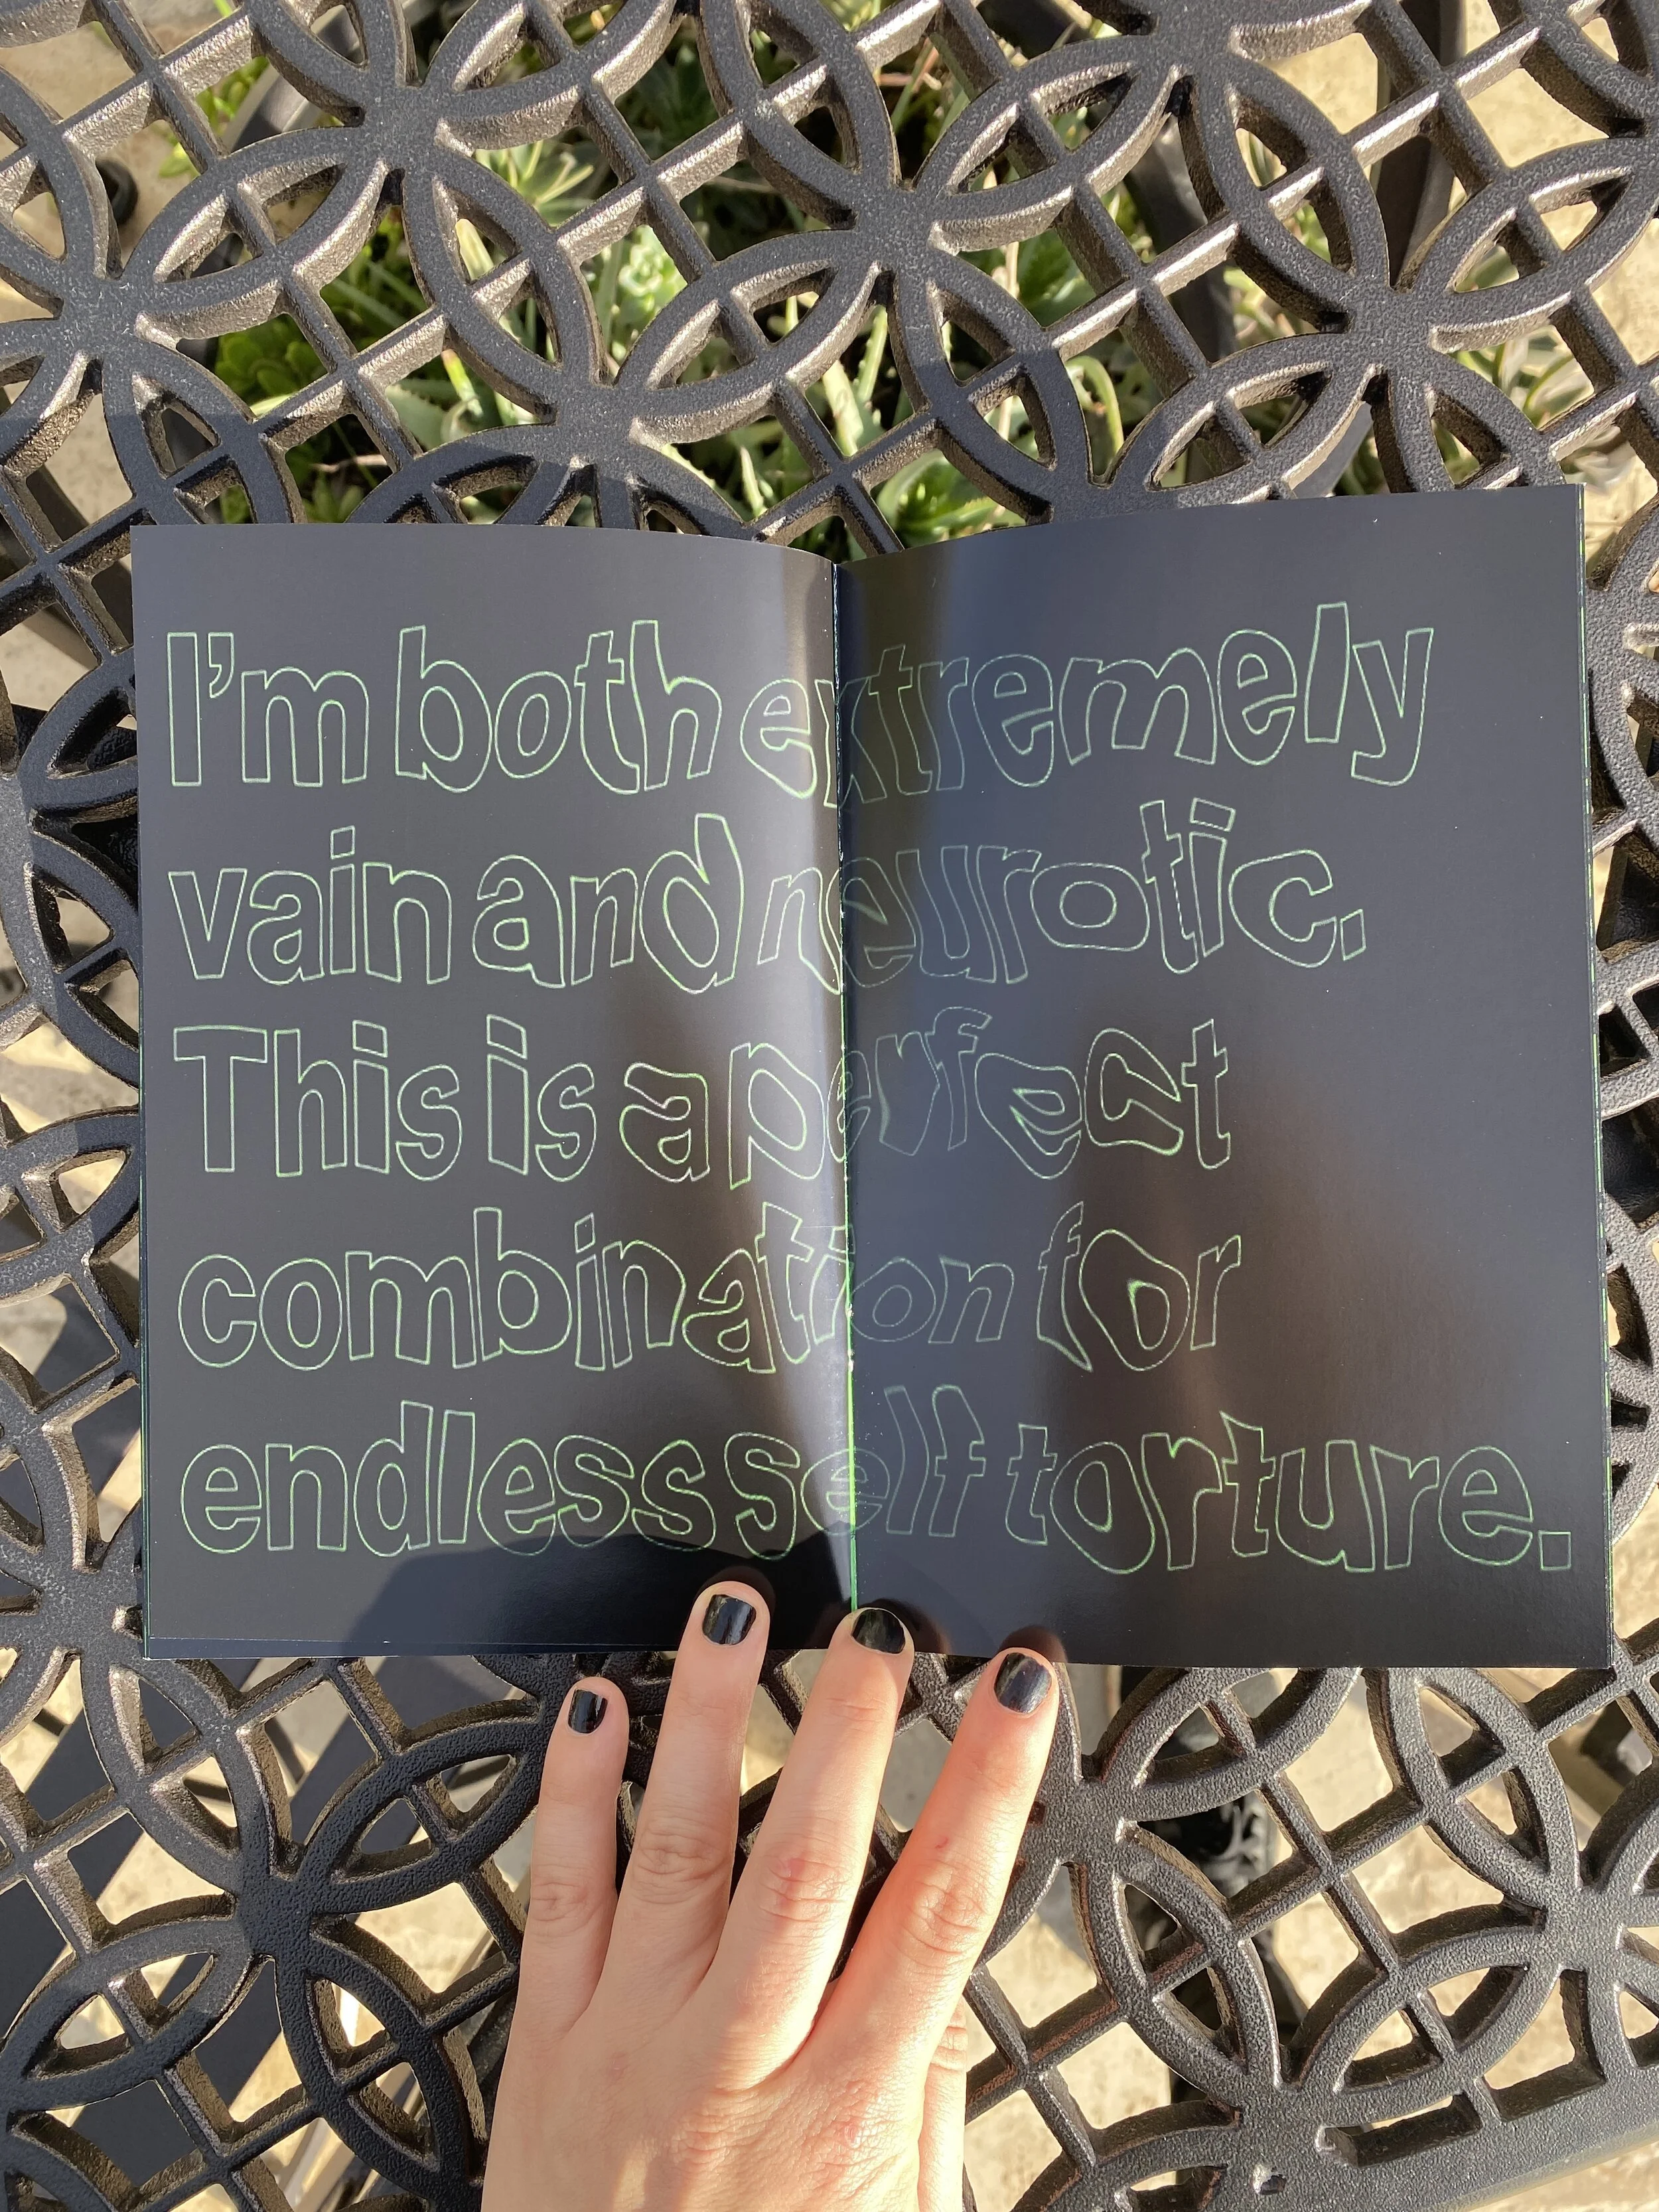 I'm both extremely
vain and neurotic.
This is a perfect
combination for
endless self torture.